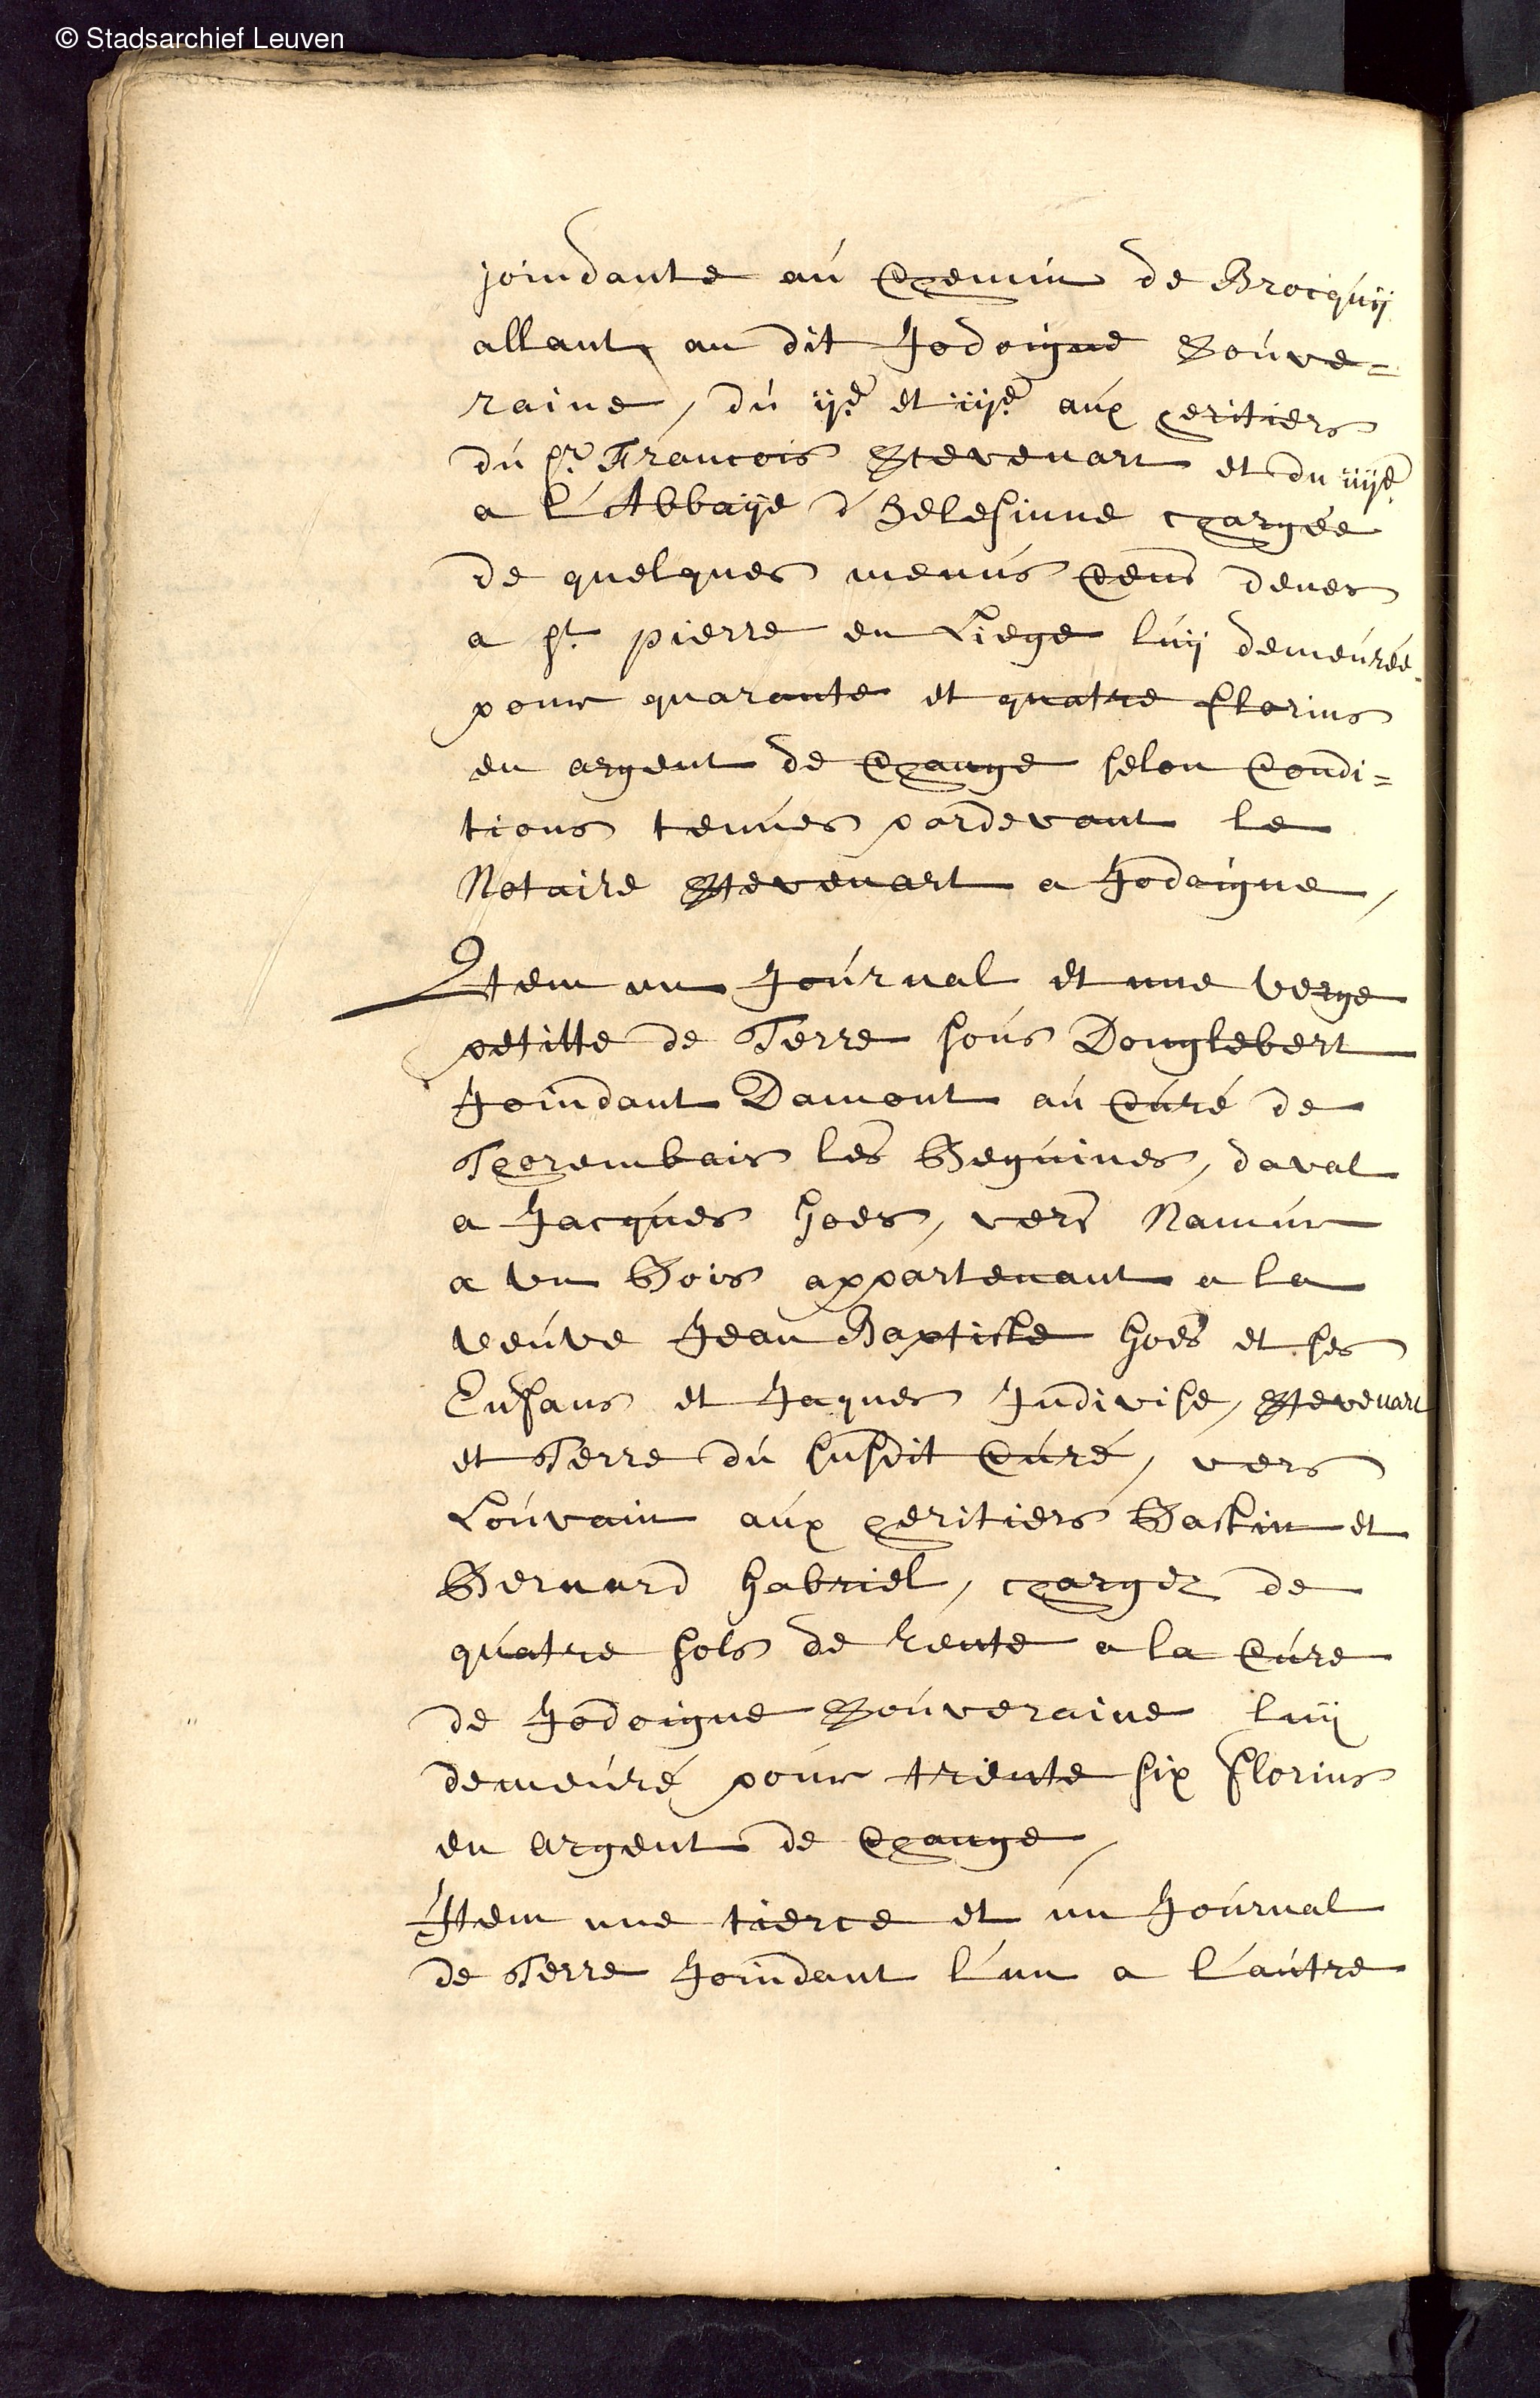 © Stadsarchief Leuven
joindante aú Chemin de Brocquÿ
allant au dit Jodoigne Soúve=
raine, dú ije et iije aux heritiers
dú Sr. Francois Stevenart et du iiije
a L'Abbaÿe d'Helesinne chargée
de quelques menús Cens deues
a St. pierre en Liege luÿ demeúrée
pour quarante et quatre florins
en argent de Change selon Condi=
tions tenúes pardevant le
Notaire Stevenart a Jodoigne,
Item un Joúrnal et une verge
petitte de Terre soús Donglebert
Joindant Damont aú Cúré de
Thorembais les Beguines, daval
a Jacques Goes, vers Namur
a un Bois appartenant a la
veúve Jean Baptiste Goes et ses
Enfans et Jaques Indivise, Stevenart
et Terre dú susdit Cúré, vers
Loúvain aux heritiers Bastin et
Bernard Gabriel, chargez de
quatre sols de rente a la Cúre
de Jodoigne Soúveraine luÿ
demeúré poúr trente six florins
en argent de Change,
Item une tierce et ún Joúrnal
de Terre Joindant l'un a l'aútre